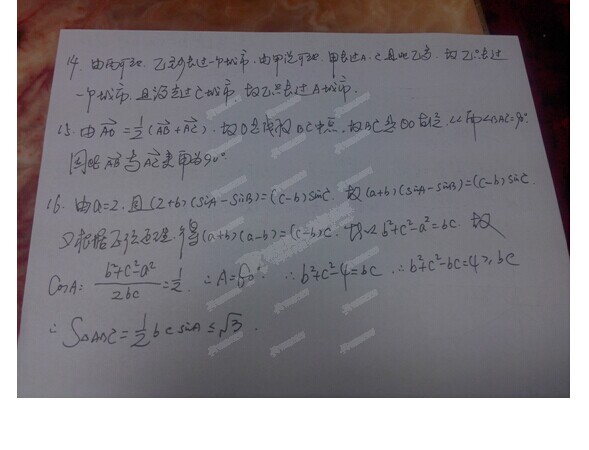 14. 由丙可知, 乙至少去过一个城市. 由甲说可知, 甲去过A, C且比乙多, 故乙只去过
一个城市, 且没去过C城市. 故乙只去过A城市.
15. 由AO=1/2(AB+AC). 故O是线段BC中点. 故BC是⊙O直径. 所∠BAC=90°
因此AB与AC夹角为90°
16. 由a=2. 且(2+b)(sinA-sinB)=(c-b)sinC. 故(a+b)(sinA-sinB)=(c-b)sinC
又根据正弦定理. 得(a+b)(a-b)=(c-b)c. b²+c²-a²=bc. 故
CosA=(b²+c²-a²)/2bc=1/2 ∴A=60° ∴b²+c²-4=bc ∴b²+c²-bc=4≥bc
∴S△ABC=1/2bcsinA≤√3.